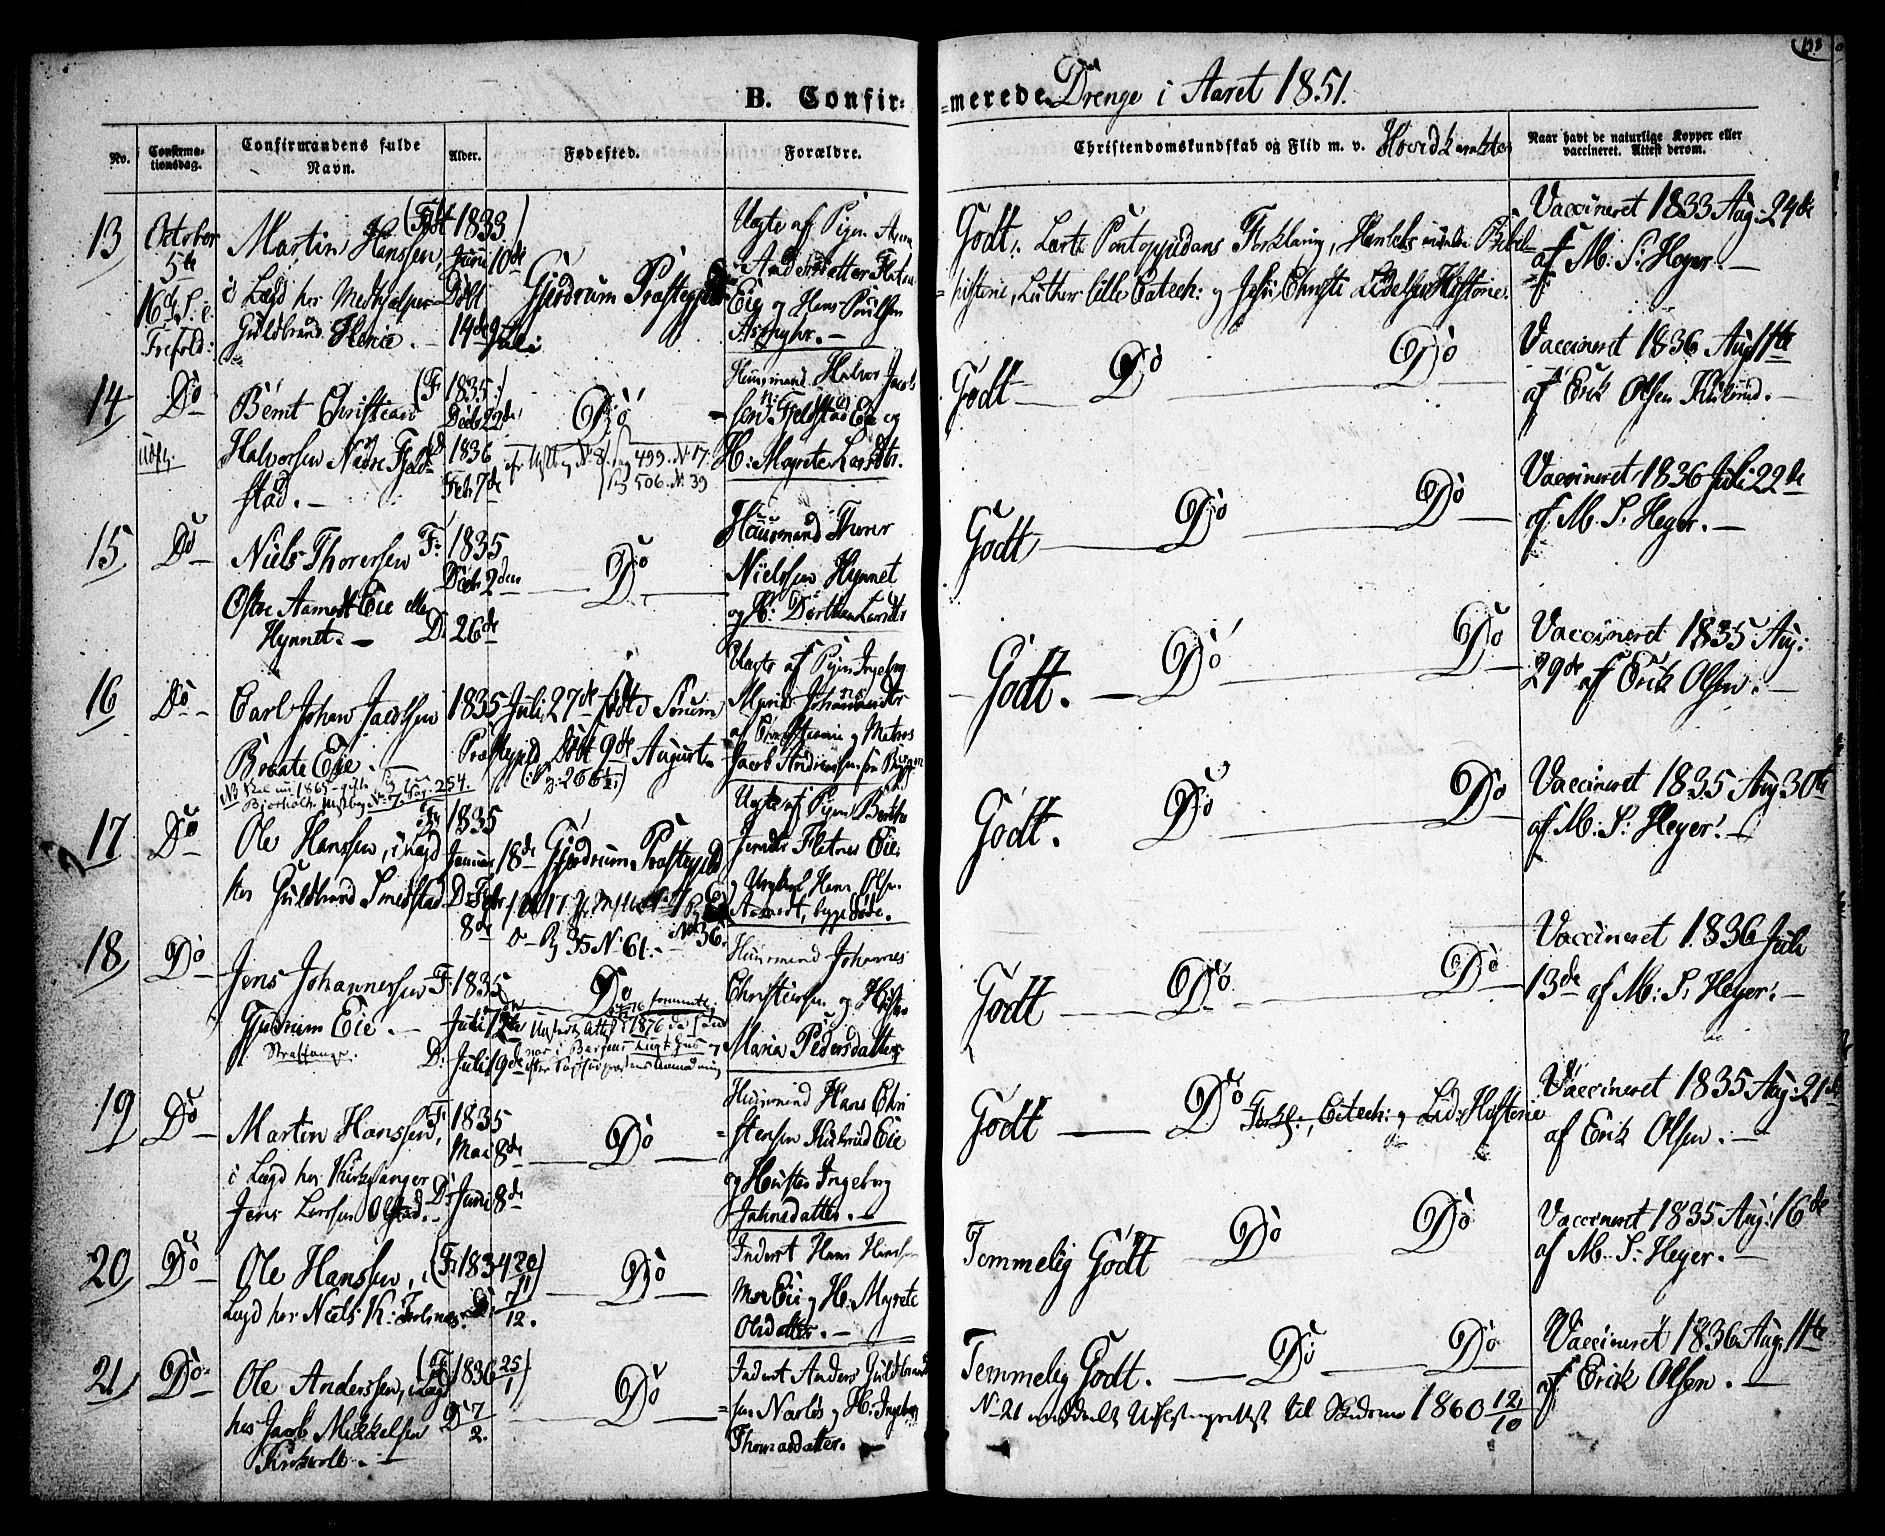 B. Confir=
=merede Drenge i Aaret 1851.
No.
Confirma-
tionsdag.
Confirmandens fulde
Navn.
Alder.
Fødested.
Forældre.
Christendomskundskab og Flid m. v. Hovedkarakter
Naar havt de naturlige Kopper eller
vaccineret. Attest derom.
13
October
5te
16de S: e:
Trefold:
Martin Hanssen
i Lægd hos Medhjælper
Guldbrand
(Født 1833)
Juni 10de
Døbt
14de Juli
Gjerdrum Præstegjeld
Uægte af Pigen
Andersdatter
Eie og Hans Poulsen
Godt: Lært Pontoppidans Forklaring, Bibel-
historie, Luthers lille Catech: og Jesu Christi Lidelses Historie.
Vaccineret 1833 Aug: 24de
af M: S: Heyer.
14
Do
Bernt Christian
Halvorsen Nedre Fjeld-
stad.
(F 1835)
Decbr 22de
1836
Febr 7de
Do
499. N. 17.
506. N. 39
Huusmand Halvor Jacob-
sen N: Fjeldstad Eie og
H: Magrete Larsdtr.
Godt Do Do
Vaccineret 1836 Aug 11te
af Erik Olsen
15
Do
Niels Thoresen
Østre Aamodt Eie eller
Hynnet.
F: 1835
Decbr 2den
D. 26de
Do
Huusmand Thorer
Nielssen Hynnet
og H: Dorthea Larsdtr
Godt Do Do
Vaccineret 1836 Juli 22de
af M. S. Heyer.
16
Do
Carl Johan Jacobsen
Braate Eie.
1835 Juli 27de født i Sørum
Præstegjeld Døbt 9de August
Uægte af Pigen Ingeborg
Jacob Andreassen fra Bergen
Godt. Do Do
Vaccineret 1835 Aug:
29de af Erik Olsen.
17
Do
Ole Hanssen, i Lægd
hos Guldbrand Smedstad
1835
Januar 18de
D: Febr
8de
Gjerdrum Præstegjeld
Pg 35 N. 61.
Uægte af Pigen Berthe
Jensdtr Fletnes Eie
og Ungkarl Hans Olsen
Aamodt, begge døde.
Godt. Do Do
Vaccineret 1835 Aug 30te
af M: S: Heyer.
18
Do
Jens Johannessen
Gjerdrum Eie.
Straffange.
F: 1835
Juli 12te
D: Juli 19de
Do
Huusmand Johannes
Christiansen og Hustru
Maria Pedersdatter
Godt Do Do
Vaccineret 1836 Juli
13de af M: S: Heyer.
19
Do
Martin Hanssen,
i Lægd hos Kirkesanger
Jens Larssen Olstad.
F: 1835
Mai 8de
D: Juni 8de
Do
Huusmand Hans Chri-
stensen Eie
og Hustru Ingeborg
Johnsdatter.
Godt Do Forkl:, Catech: og Lid: Historie
Vaccineret 1835 Aug: 21de
af Erik Olsen.
20
Do
Ole Hanssen, i
Lægd hos Niels K:
(F: 1834 20/11)
D: 7/12.
Do
Inderst Hans Hansen
Moe Eie og H: Magrete
Olsdatter.
Temmelig Godt Do Do
Vaccineret 1835 Aug: 16de
af M. S: Heyer.
21
Do
Ole Anderssen, i Lægd
hos Jacob Mikkelsen
(F 1836 25/1)
D 7/2.
Do
Inderst Anders Guldbrand-
sen og H: Ingeborg
Thomasdatter.
Temmelig Godt. Do Do
N. 21 meddeelt til 1860 12/10
Vaccineret 1836 Aug 11te
af Erik Olsen.